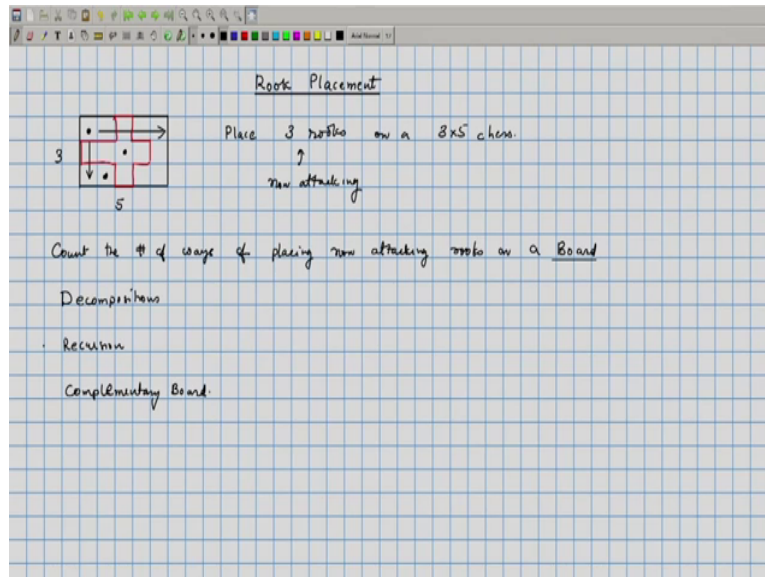 Rook Placement
Place 3 rooks on a 3x5 chess.
3
non attacking
5
Count the # of ways of placing non attacking rooks on a Board
Decompositions
Recursion
Complementary Board.